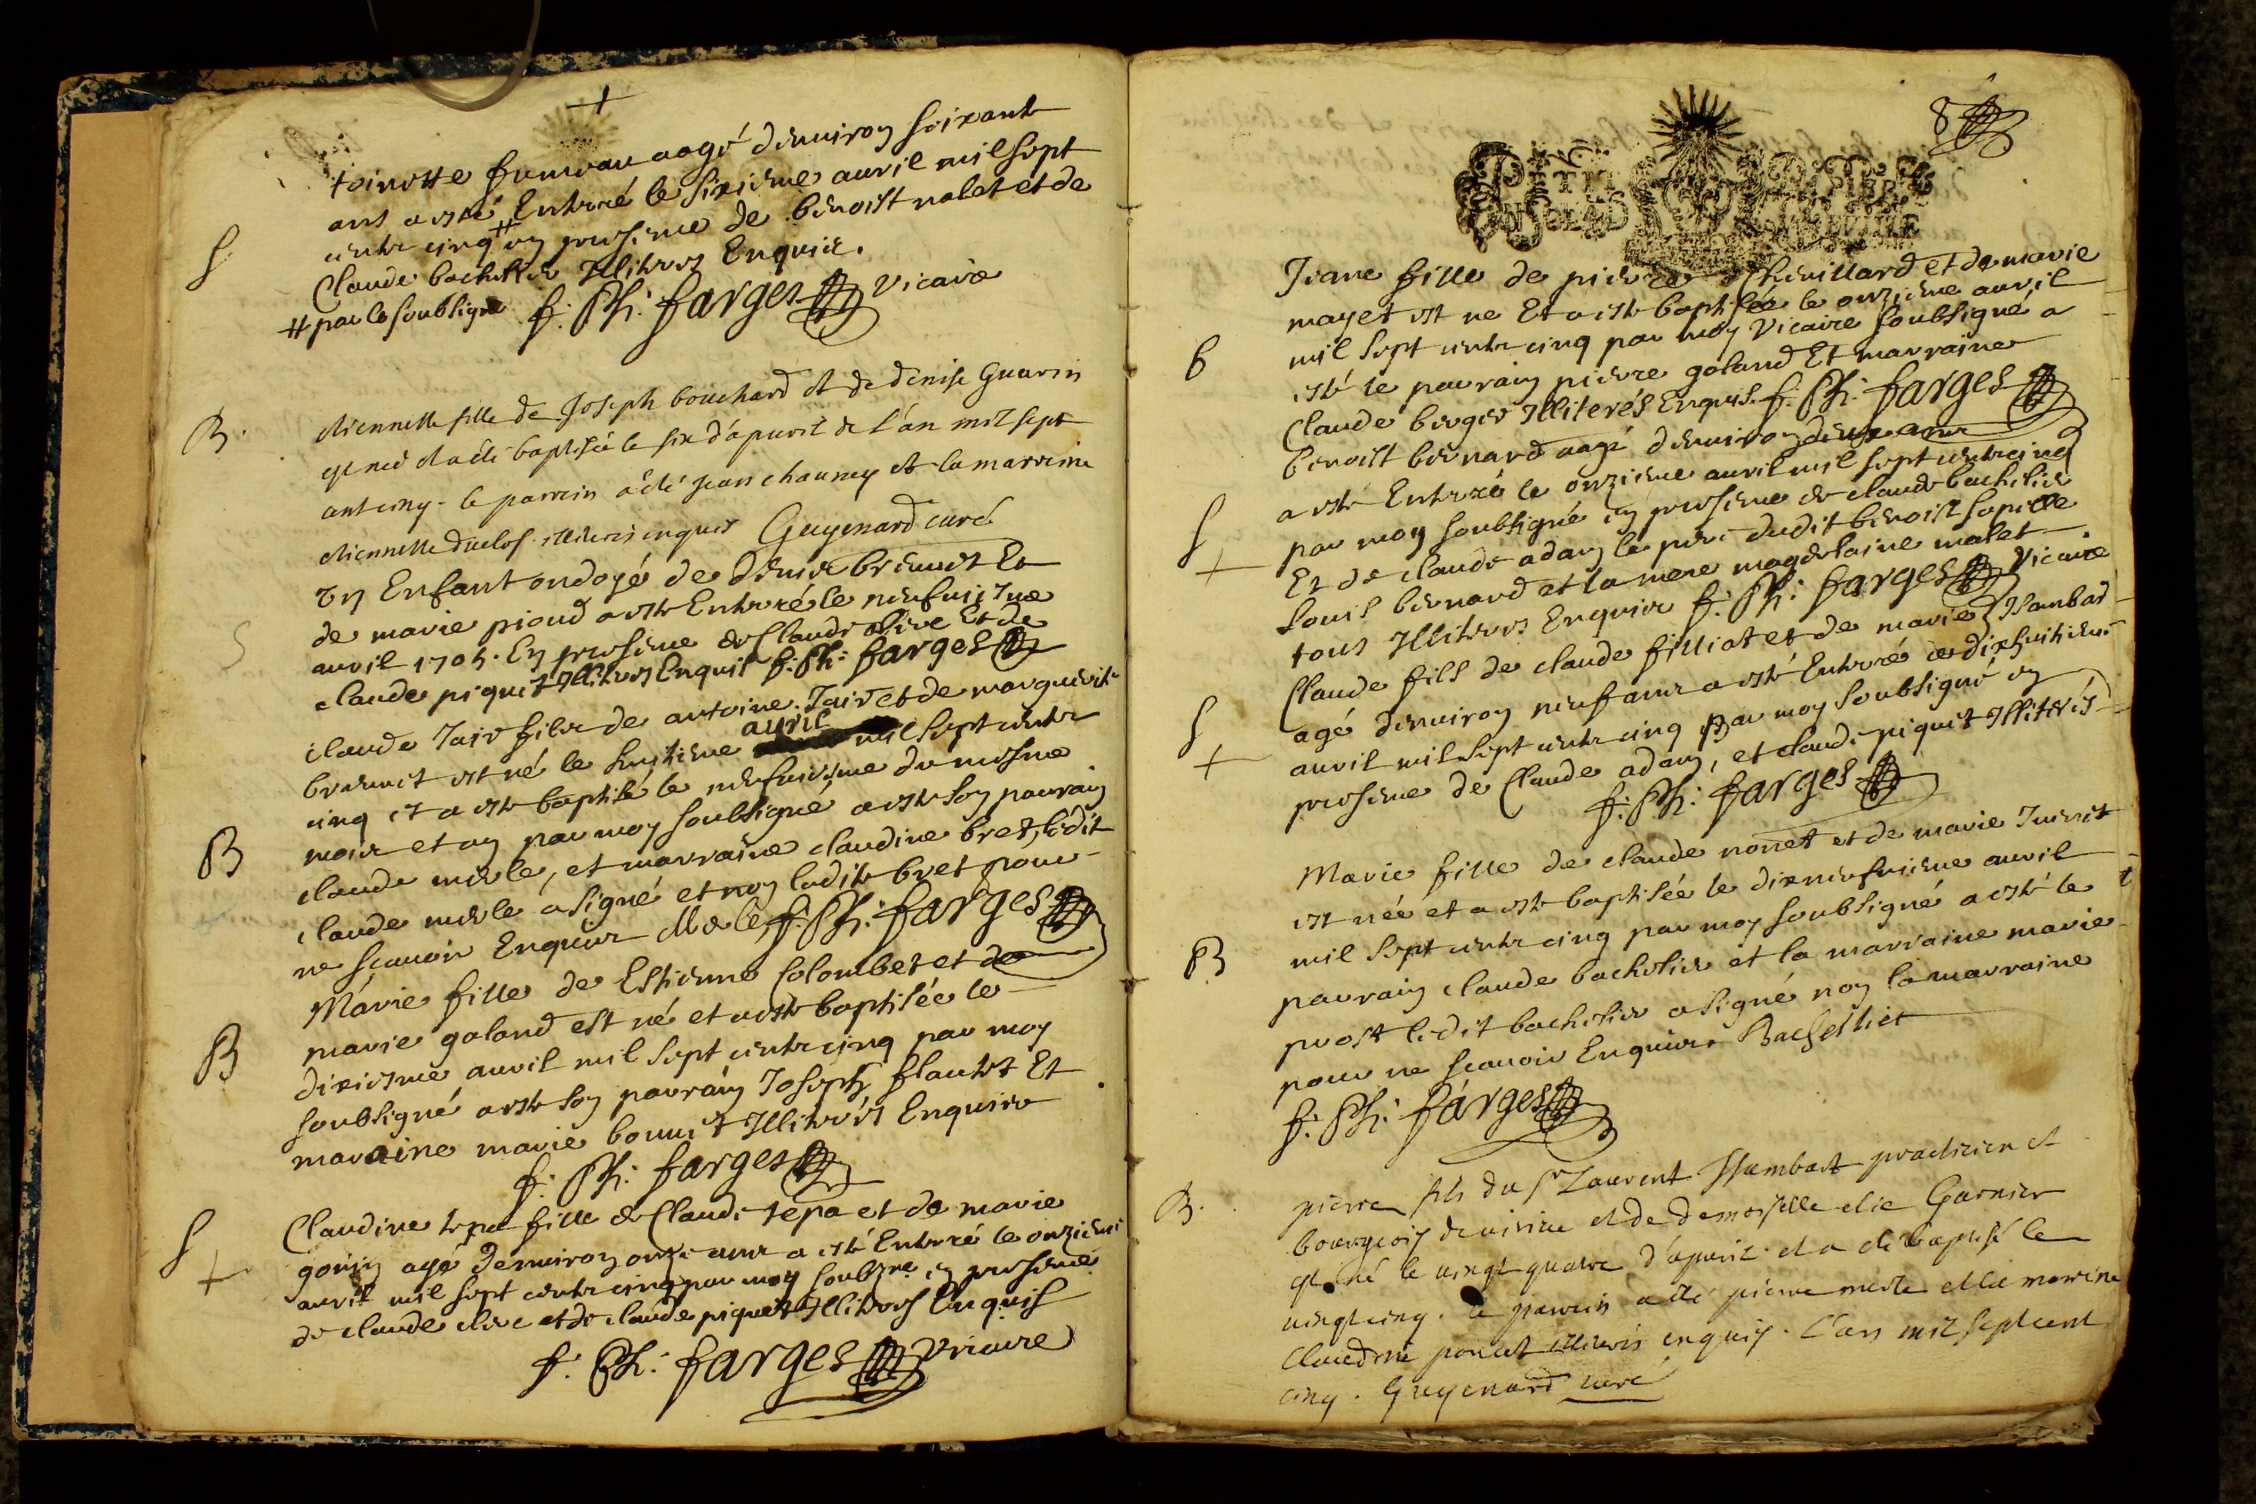 toinette fumeau aagé d'enuiron soixante
ans a esté Enterré le sixieme auril mil sept
cents cinq # en presence de benoist nalet et de
S
Claude bachelier Illiteres Enquis.
# par le soubsigné f. Ph. farges vicaire
B.
etiennette fille de Joseph bouchard et de denise Guerin
est née et a été baptisée le six d'apuril de l'an mil sept
cent cinq. le parrein a été jean chauney et la marreine
etiennette duclos. illiterés enquis Guyenard curé
Un Enfant ondoyé de denis breunet Et
de marie pioud a esté Enterré le neufuiesme
S
auril 1705. En presence de Claude oliue Et de
claude piquet Illiteres Enquis f. Ph. farges
Claude Jaiv fils de antoine Jaiv et de marguerite
breunet est né le huitieme auril mil sept cents
cinq et a esté baptisé le neufuiesme du mesme
mois et an par moy soubsigné a esté son parrain
B
claude merle, et marraine claudine bret, ledit
claude merle a signé et non ladite bret pour
ne scauoir Enquise Merle f. Ph. farges
Marie fille de Estienne Colombet et de
B
marie goland est né et a esté baptisée le
dixiesme auril mil sept cents cinq par moy
soubsigné a esté son parrain Joseph flautet Et
maraine marie bonnet Illiterés Enquis
f. Ph. farges
S
Claudine tepa fille de Claude tepa et de marie
gonin agé denuiron onze ans a esté Enterré le onzieme
auril mil sept cents cinq par moy soubz.né en presence
de claude cliue et de claude piquet Illiteres Enquis
f. Ph. farges Vicaire
8
Jeane fille de pierre Cheuillard et de marie
mayet est ne Et a esté baptisée le onzieme auril
B
mil sept cents cinq par moy vicaire soubsigné a
esté le parrain pierre goland Et marraine
Claude berger Illiterés Enquis. f. Ph. farges
benoist bernard aagé denuiron deux ans
a esté Enterré le onzieme auril mil sept cents cinq
S
par moy soubsigné en presence de claude bachelier
Et de claude adam le pere dudit benoist sapelle
Louis bernard et la mere magdelaine malet
tous Illiteres Enquis f. Ph. farges Vicaire
Claude fils de claude filliat et de marie Isambard
S
agé denuiron neuf ans a esté Enterré le dixhuitieme
auril mil sept cents cinq Par moy soubsigné en
presence de Claude adam, et claude piquet Illiterés
f. Ph. farges
Marie fille de claude nonet et de marie Juenet
est née et a esté baptisée le dixneufuieme auril
B
mil sept cents cinq par moy soubsigné a esté le
parrain claude bachelier et la marraine marie
prost ledit bachelier a signé non la marraine
pour ne scauoir Enquise Bachellier
f. Ph. farges
B.
pierre fils du Sr Laurent Isambart practicien et
bourgeois et de demoiselle elie Garnier
est né le uingt quatre d'apuril et a été baptisé le
uingt cinq. le parrein a été pierre merle et la marreine
Claudine poncet illiterés enquis. L'an mil sept cent
cinq. Guyenard curé